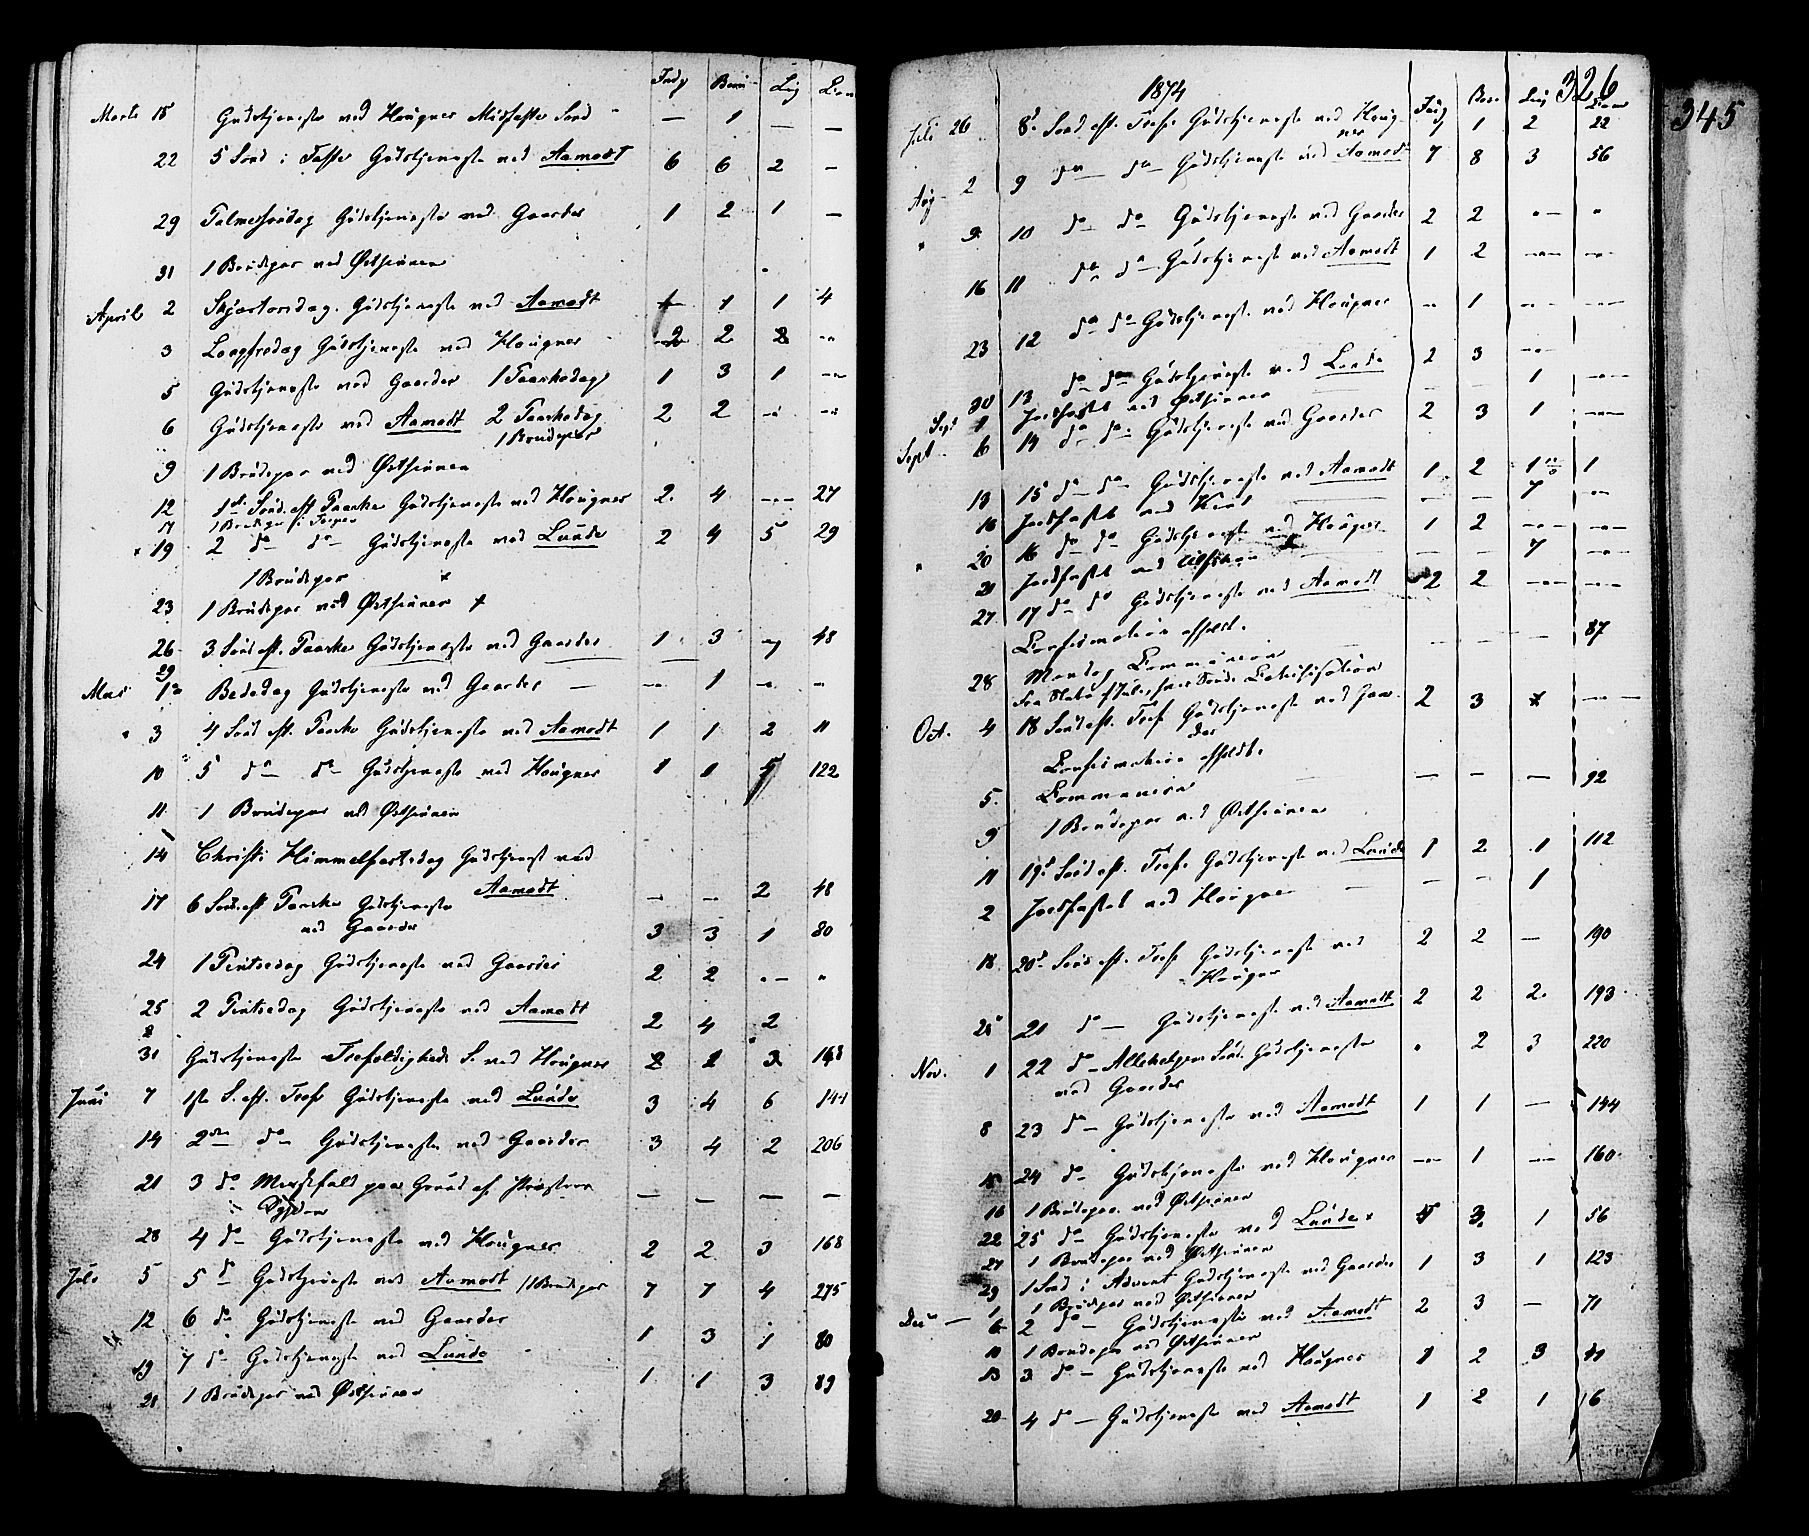 Indg Børn Lig Com
Marts 15 Gudstjeneste ved Hougner Midfaste Sønd — 1 — —
22 5 Sønd i Faste Gudstjeneste ved Aamodt 6 6 2 —
29 Palmesøndag Gudstjeneste ved Gaarder 1 2 1 —
31 1 Brudepar ved Østsinnen
April 2 Skjærtorsdag. Gudstjeneste ved Aamodt 1 1 4
3 Langfredag Gudstjeneste ved Hougner 2 2
5 Gudstjeneste ved Gaarder 1 Paaskedag 1 3 1 —
6 Gudstjeneste ved Aamodt 2 Paaskedag 2 2
1 Brudepar
9 1 Brudepar ved Østsinnen
12 1ste Sønd. eft Paaske Gudstjeneste ved Hougner 2 4 — 27
17 1 Brudepar
19 2 do do Gudstjeneste ved Lunde 2 4 5 29
1 Brudepar x
23 1 Brudepar ved Østsinnen x
26 3 Sønd eft. Paaske Gudstjeneste ved Gaarder 1 3 48
29
Mai 1 Bededag Gudstjeneste ved Gaarder — — 1 — —
3 4 Sønd eft. Paaske Gudstjeneste ved Aamodt 1 1 2 11
10 5 do do Gudstjeneste ved Hougner 1 1 122
11 1 Brudepar ved Østsinnen
14 Christi Himmelfartsdag Gudstjenest ved
Aamodt — — 2 48
17 6 Sønd. eft Paaske Gudstjeneste
ved Gaarder 3 3 1 80
24 1 Pintsedag Gudstjeneste ved Gaarder 2 2 —
25 2 Pintsedag Gudstjeneste ved Aamodt 2 4 2
31 Gudstjeneste Trefoldigheds S. ved Hougner 2 2 3 148
Juni 7 1ste S. eft. Tref. Gudstjeneste ved Lunde 3 4 6 144
14 2den do Gudstjeneste ved Gaarder 3 4 2 206
21 3 do Messefald paa Grund af Præstens
Sygdom — — — —
28 4 do Gudstjeneste ved Hougner 2 2 3 168
Juli 5 5 do Gudstjeneste ved Aamodt / 1 Brudepar 7 7 4 275
12 6 do Gudstjeneste ved Gaarder 1 3 1 80
19 7 do Gudstjeneste ved Lunde 1 1 3 89
21 1 Brudepar ved Østsinnen
326
345
1874
Indg Børn Lig Com
Juli 26 8de Sønd. eft. Tref. Gudstjeneste ved Houg-
ner 1 2 22
Aug 2 9 do — do — Gudstjeneste ved Aamodt 7 8 3 56
" 9 10 do do Gudstjeneste ved Gaarder 2 2 — "
16 11 do do Gudstjeneste ved Aamodt 1 2 — —
23 12 do do Gudstjeneste ved Hougner — 1 — —
30 13 do do Gudstjeneste ved Lunde 2 3 —
Sept 1 Jordfæstet ved Østsinnen — — 1 —
Sept. 6 14 do do Gudstjeneste ved Gaarder 2 3 1 —
13 15 do do Gudstjeneste ved Aamodt 1 2 1 1
16 Jordfæstet ved — — 7 —
" 20 16 do do Gudstjeneste ved Hougner 1 2 — —
21 Jordfæstet ved — — 7 —
27 17 do do Gudstjeneste ved Aamodt 2 2 — —
Confirmation afholdt. — — — 87
28 Mandag Communion
Catechisation
Oct. 4 18 Sønd eft. Tref Gudstjeneste ved Gaar-
der 2 3 —
Confirmation afholdt.
5. Communion — — — 92
9 1 Brudepar ved Østsinnen
11 19de Sønd eft. Tref. Gudstjeneste ved Lunde 1 2 1 112
2 Jordfæstet ved Hougner — — — 1
18 20de Sønd eft. Tref Gudstjeneste ved
Hougner 2 2 — 190
25 21 do — Gudstjeneste ved Aamodt 2 2 2 193
Nov. 1 22 do Allehelgen Sønd. Gudstjeneste
ved Gaarder " 2 3 220
8 23 do — Gudstjeneste ved Aamodt 1 1 — 144
15 24 do Gudstjeneste ved Hougner — 1 — 160
16 1 Brudepar ved Østsinnen
22 25 do Gudstjeneste ved Lunde x 3 1 56
27 1 Brudepar ved Østsinnen
29 1 Sønd i Advent Gudstjeneste ved Gaarder 1 3 1 123
Dec — 1 1 Brudepar ved Østsinnen
6 2 do — Gudstjeneste ved Aamodt 2 3 — 71
10 1 Brudepar ved Østsinnen
13 3 do — Gudstjeneste ved Hougner 1 2 3
20 4 do — Gudstjeneste ved Aamodt 1 2 1 16